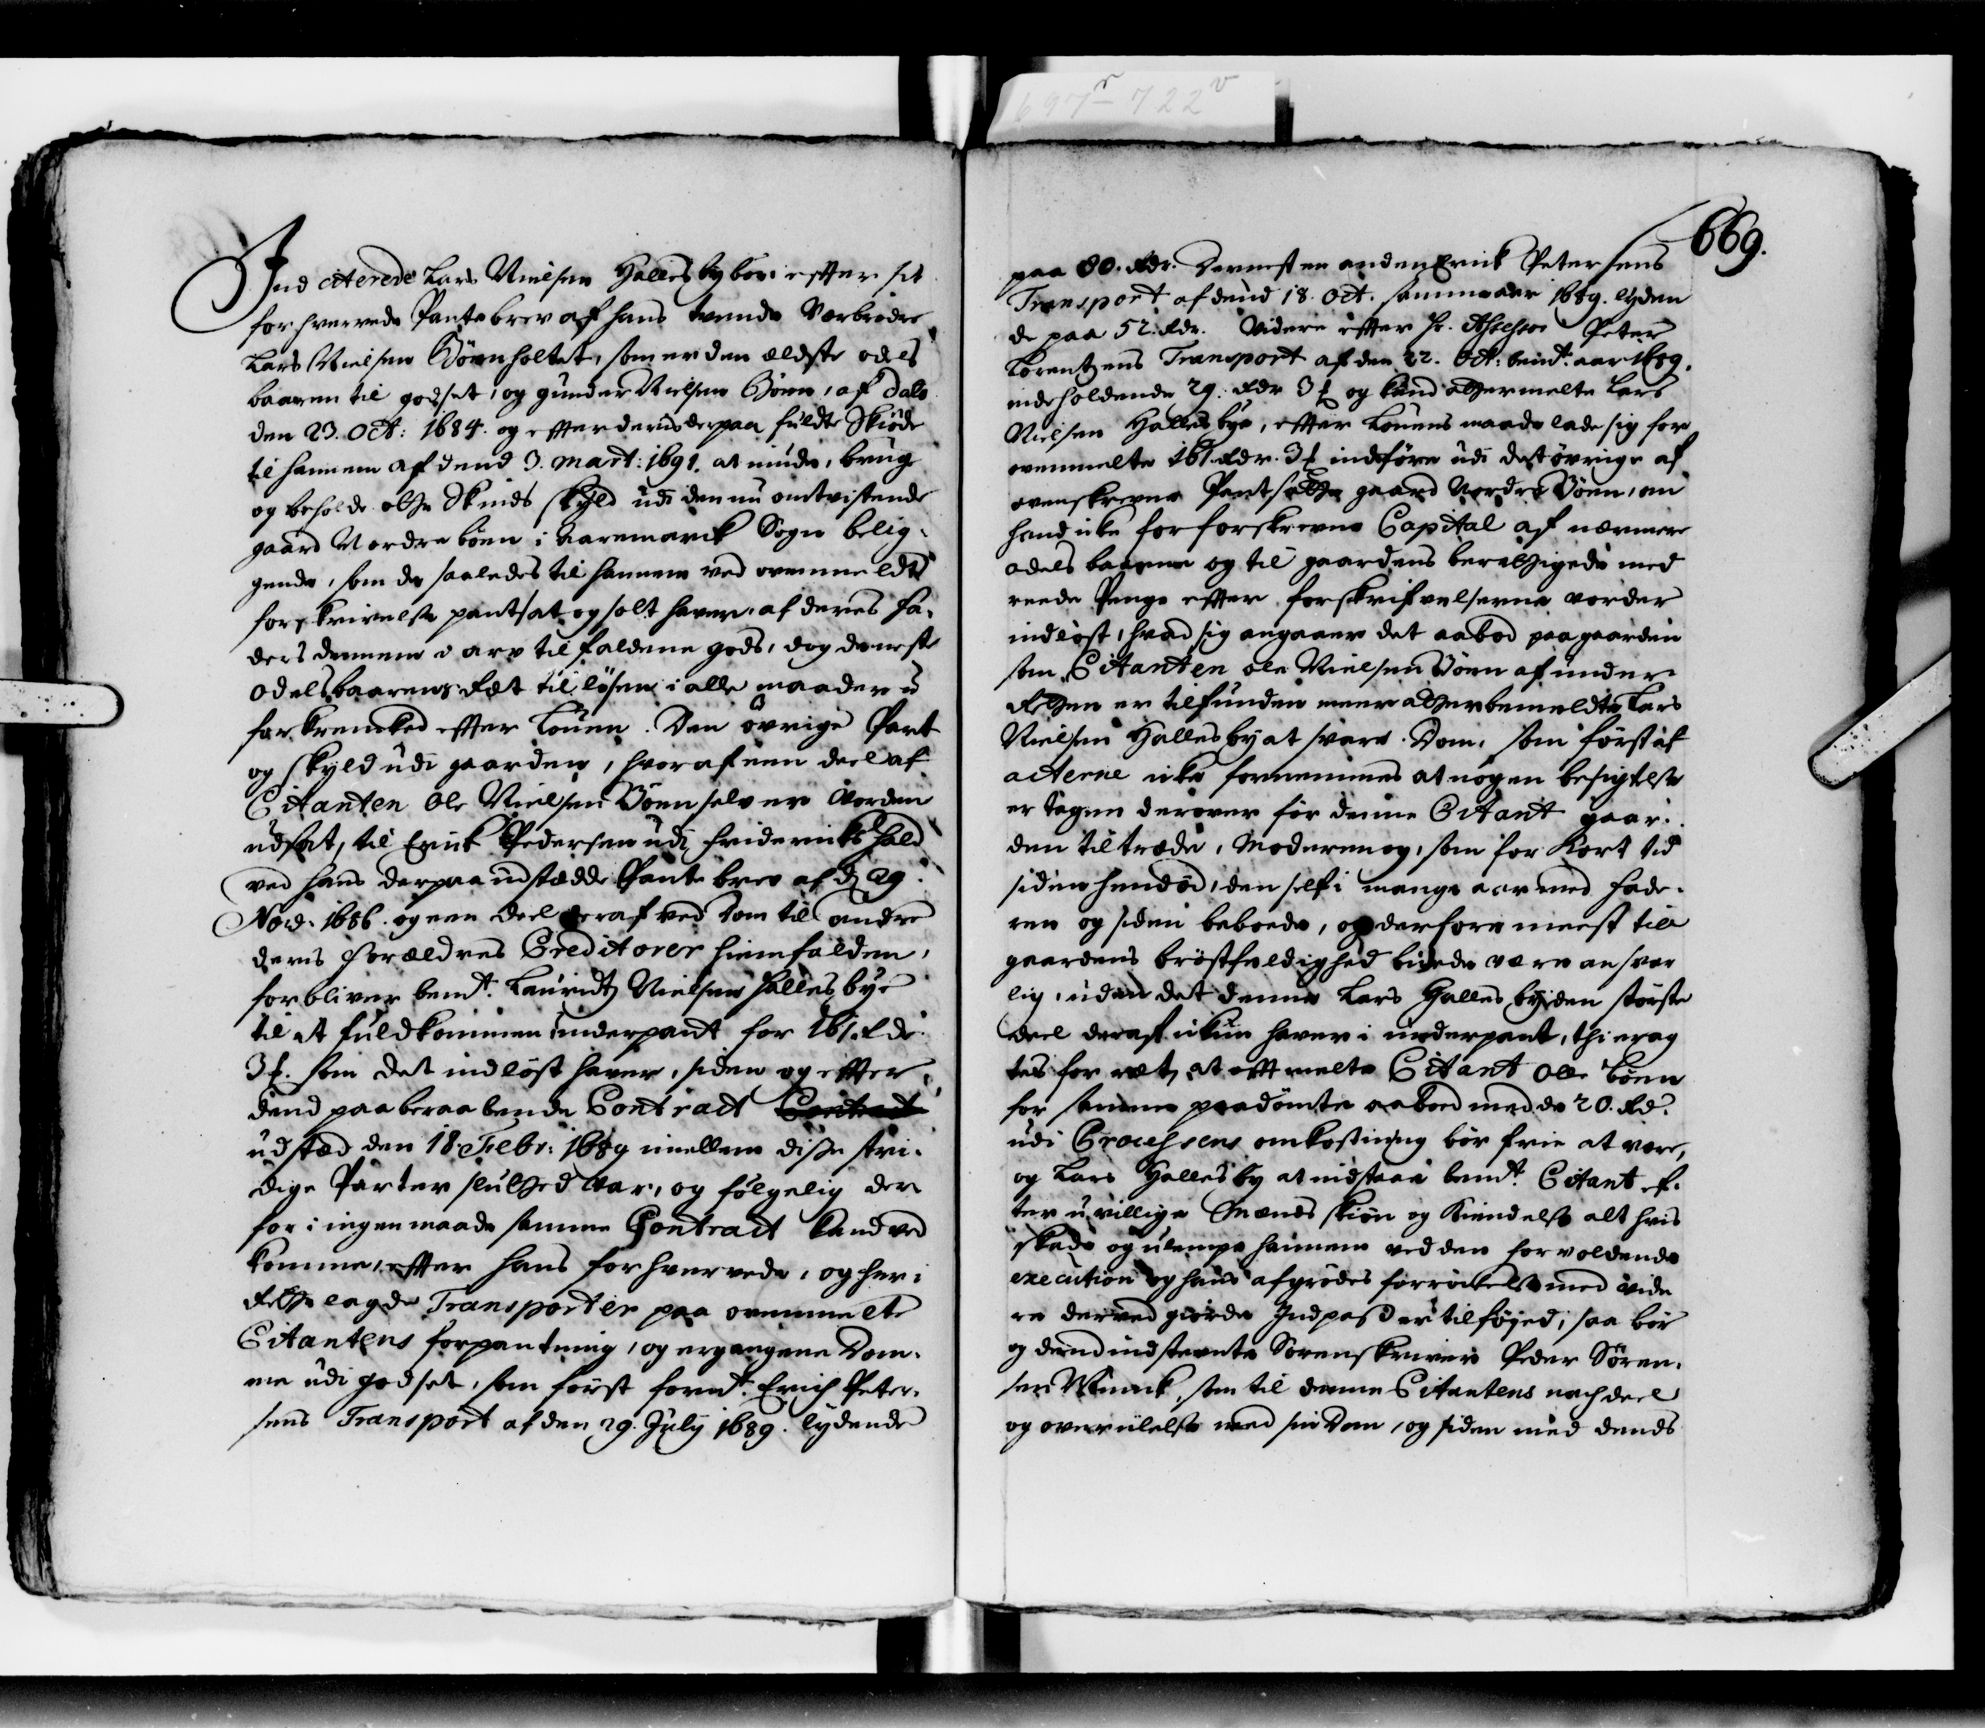 697r – 722v
Ind citerede Lars Nielsen Hallesbybør efter sit
forhvervede Pantebrev af hans tvende Vorbrødre
Lars Nielsen Bøenholtet, som er den ældste odels
baaren til godset, og gunder Nielsen Bøen, af Dato
den 23. Oct: 1684. og efter deris derpaa fuldte Skiøde
til hannem af dend 3. Mart: 1691. at niude, bruge
og beholde otte Skinds skyld udi den nu omtvistende
gaard Nordre böen i Aaremarck Sogn belig-
gende, som de saaledes til hannem ved ovenmeldte
forskrivelse pantsat og solt haver, af deres fa-
ders dennem i arv tilfaldene gods, dog de neste
Odelsbaarens Ræt til løsen i alle maader u
forkrencked efter Louen. Den övrige Part
og skyld udi gaarden, hvoraf een deel af
Citanten Ole Nielsen Böen selv er vorden
udsat, til Erick Pedersen udi Friderickshald
ved hans derpaa udstædde Pantebrev af d 29.
Nov: 1686. og een deel deraf ved Dom til andre
deris Forældres Creditorer hiemfalden,
forbliver bemt. Lauridtz Nielsen Hallesbye
til et fuldkommen underpant for 161. Rdr
3 . som det indløst haver, siden og efter
dend paaberaabende Contract Contract
udstæd den 18. Febr: 1689 imellem disse stri-
dige Parter slutted var, og fölgelig der
for i ingen maade samme Contract kand ved
komme, efter hans forhvervede, og her i
Rette lagde Transporter paa ovenmelte
Citantens forpantning, og ergangene Dom-
me udi godset, som först formt. Erich Peter-
sens Transport af den 29. July 1689. lydende
669.
paa 80. Rdr. Dernest en anden Erick Petersens
Transport af dend 18. Oct. samme aar 1689. lyden
de paa 52. Rdr. Videre efter Hr. Assessor Peter
Lorentzens Transport af den 22. Oct: bemt. aar 1689.
indeholdende 29. Rdr 3  og kand attermelte Lars
Nielsen Hallesbye, efter Louens maade lade sig for
ovenmelte 161. Rdr. 3  indføre udi det övrige af
ovenskrevne Pantsatte gaard Nordre Böen, om
hand icke for forskrevne Capital af nærmere
odels baarne og til gaardens berettigede med
reede Penge efter forskrifvelserne vorder
indlöst, hvad sig angaaer det aabod paa gaarden
som Citanten Ole Nielsen Böen af under-
Retten er tilfunden meer atterbemeldte Lars
Nielsen Hallesby at svare. Dom, som först af
acterne icke fornemmes at nogen besigtelse
er tagen derover för denne Citant gaar-
den tiltræde, Moderen og, som for kort tid
siden hendöd, den self i mange aar med Fade-
ren og siden beboede, og derfore meest til
gaardens bröstfældighed burde være ansvar
lig, uden det denne Lars Hallesby, den störste
deel deraf ickun haver i underpant, thi erag
tes for ræt, at oftmelte Citant Olle Böen
for samme paadömte aabod med de 20. Rd.
udi Processens omkostning bör frie at være,
og Lars Hallesby at udstaae bemt. Citant ef-
ter uvillige Mænds skiön og kiendelse alt hvis
skade og ulempe hannem ved den forvoldende
execution og hans afgrödes forröckelse med vide
re derved giorde Indpas er tilföjed, saa bör
og dend indstevnte Sorenskriver Peder Sören-
sen Winnick, som til denne Citantens nachdeel
og overiilelse med sin Dom, og siden med dends